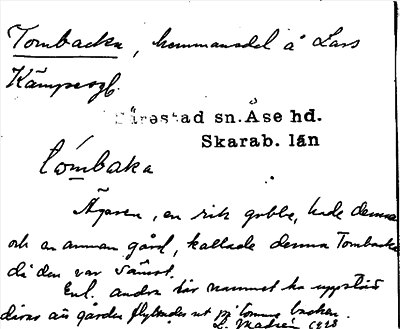 Tombacka, hemmansdel å Lars
Kämpesg.
Särestad sn. Åse hd.
Skarab. län
tómbaka
Ägaren, en rik gubbe, hade denna
och en annan gård, kallade denna Tombacka
då den var sämst.
Enl. andra bör namnet ha uppstått
däraf att gården flyttades ut på tomma backen.
1928